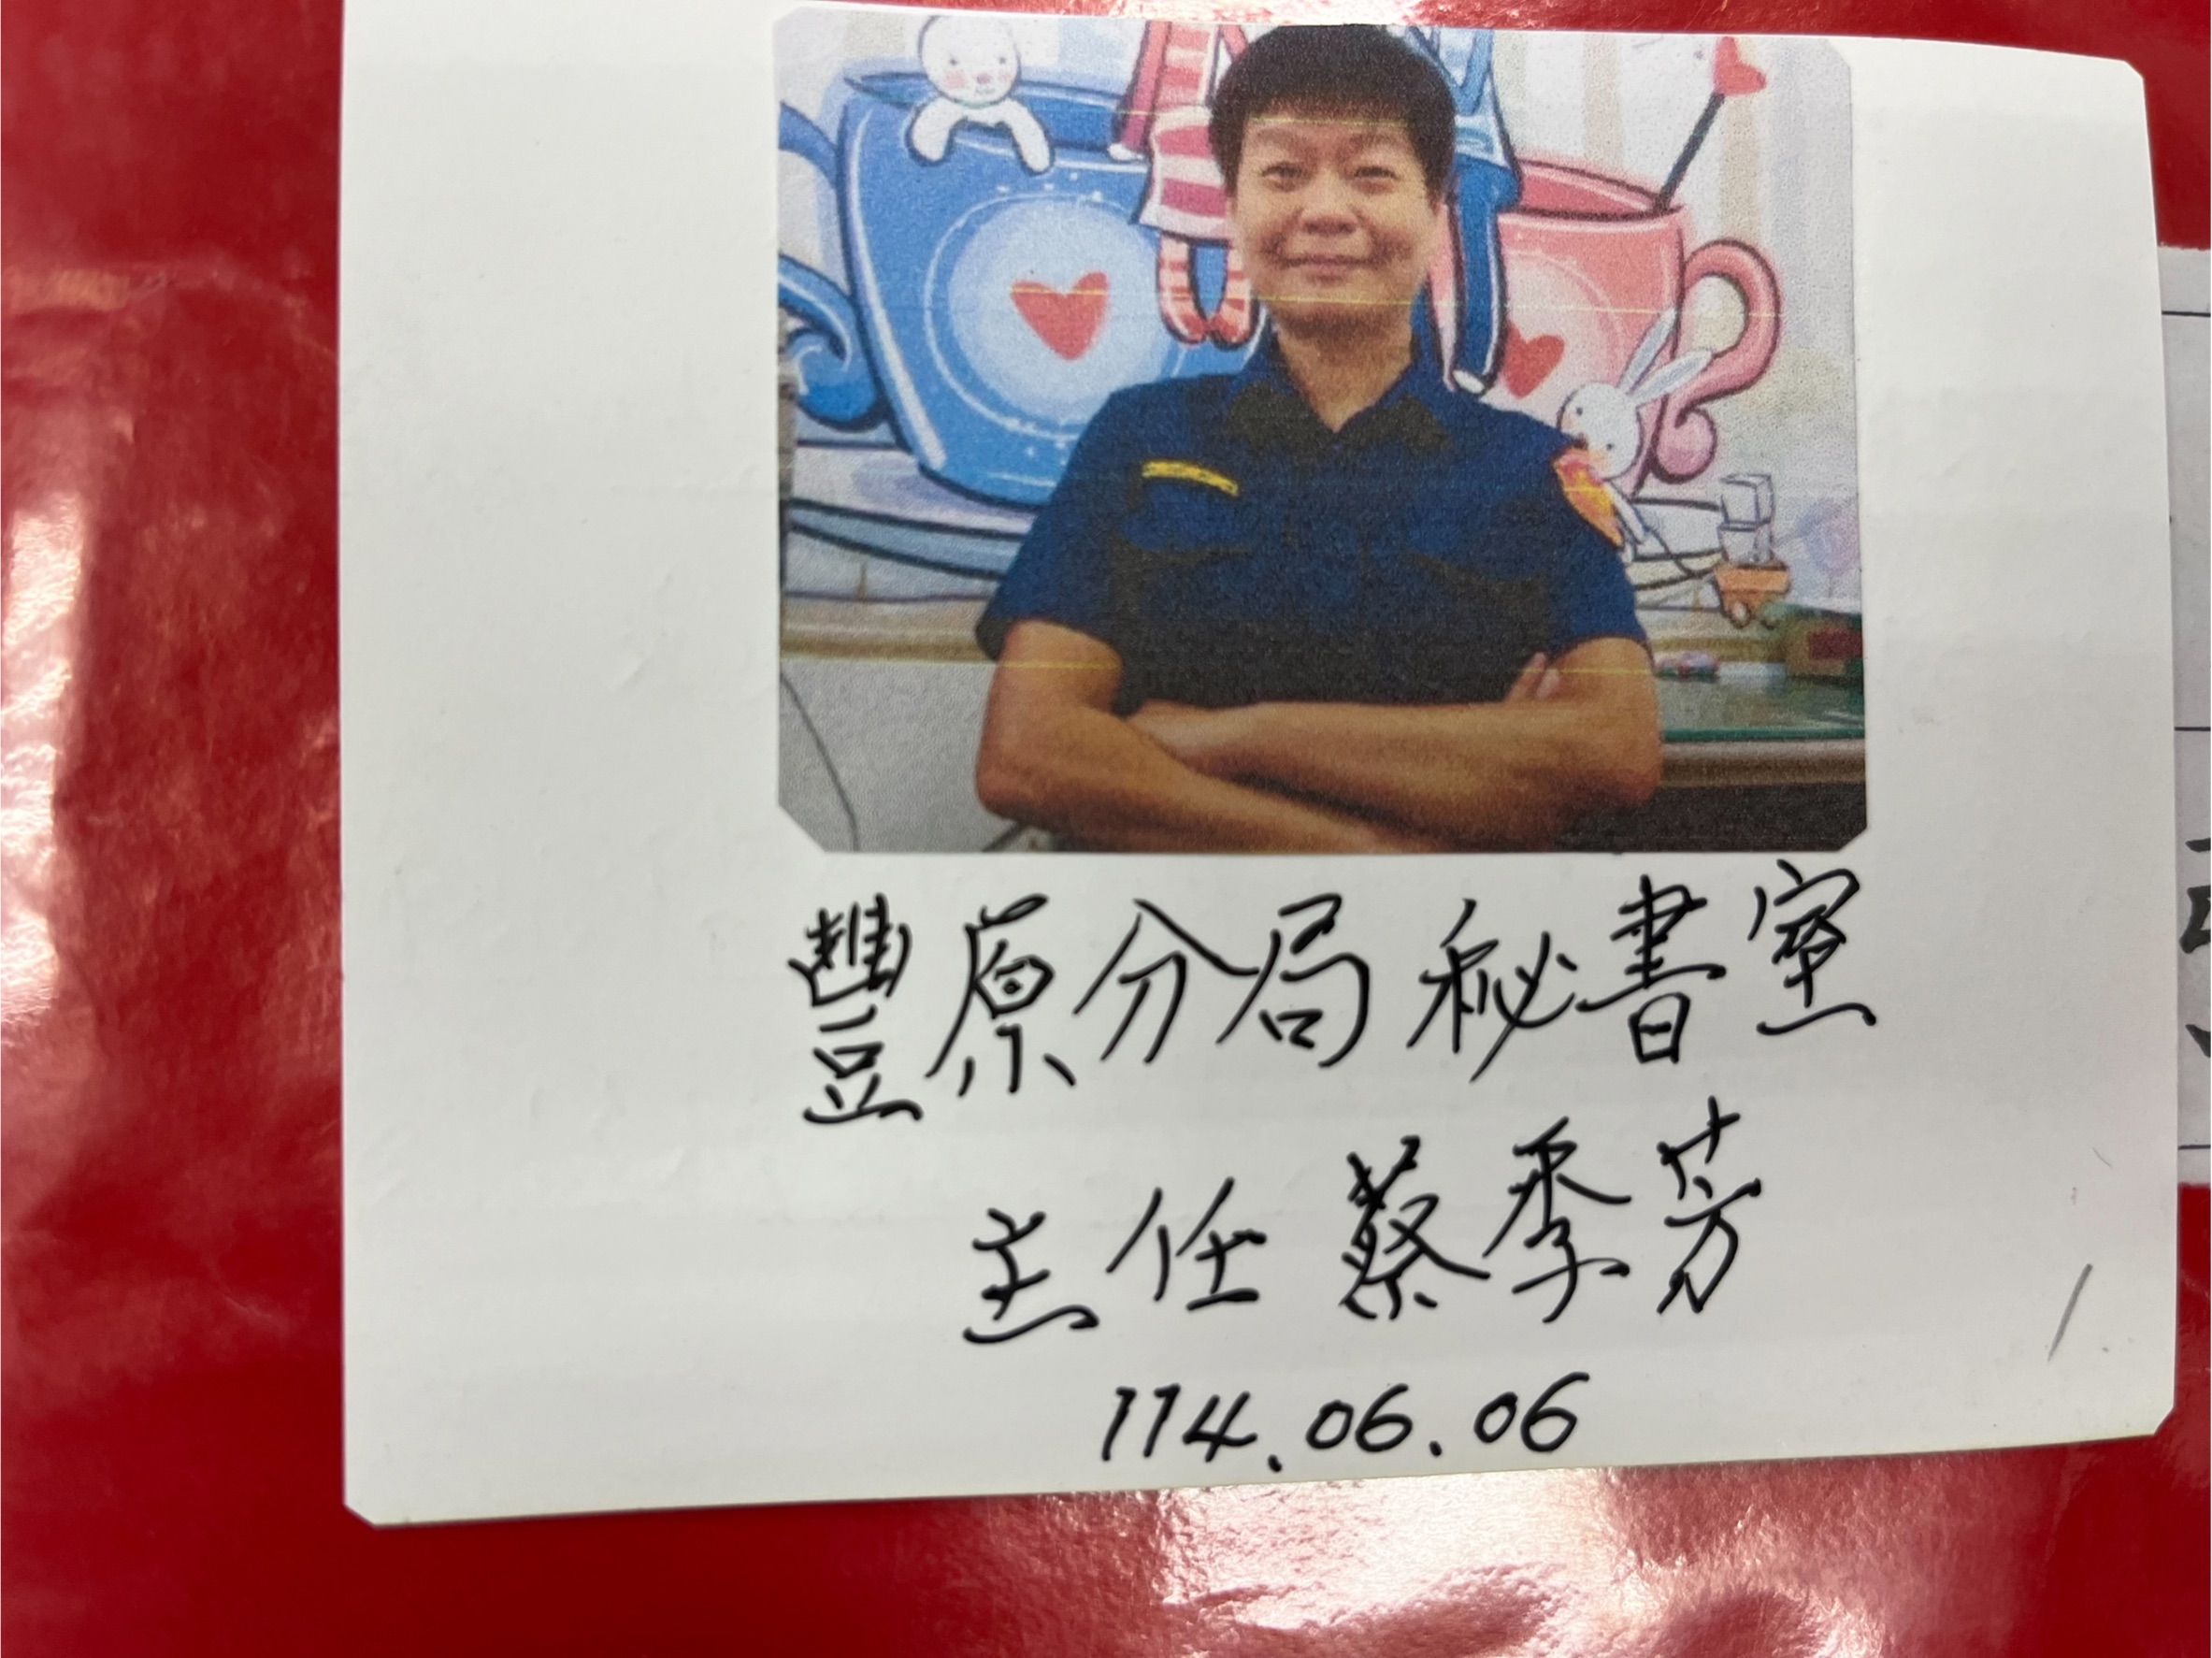 豐原分局秘書室
主任 蔡季芳
114.06.06
1.